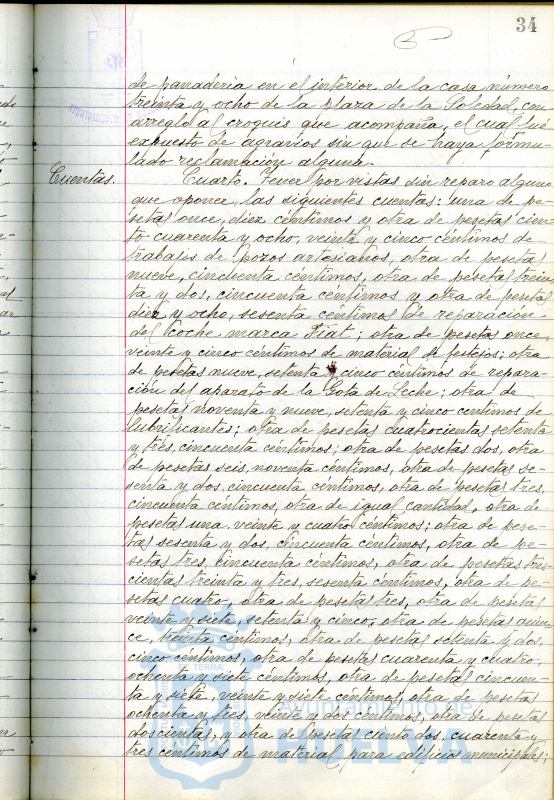 34
de panaderia en el interior de la casa número
treinta y ocho de la plaza de la Soledad, con
arreglo al croquis que acompaña, el cual fué
expuesto de agravios sin que se haya formu-
lado reclamación alguna.
Cuentas.
Cuarto. Tener por vistas sin reparo alguno
que oponer, las siguientes cuentas: una de pe-
setas once, diez céntimos y otra de pesetas cien-
to cuarenta y ocho, veinte y cinco céntimos de
trabajos de pozos artesianos, otra de pesetas
nueve, cincuenta céntimos, otra de pesetas trein-
ta y dos, cincuenta céntimos y otra de pesetas
diez y ocho, sesenta céntimos de reparación
del coche marca Fiat; otra de pesetas once,
veinte y cinco céntimos de material de festejos; otra
de pesetas nueve, setenta y cinco céntimos de repara-
ción del aparato de la Gota de Leche; otra de
pesetas noventa y nueve, setenta y cinco céntimos de
lubrificantes; otra de pesetas cuatrocientas setenta
y tres, cincuenta céntimos; otra de pesetas dos, otra
de pesetas seis, noventa céntimos, otra de pesetas se-
senta y dos, cincuenta céntimos, otra de pesetas tres,
cincuenta céntimos, otra de igual cantidad, otra de
pesetas una, veinte y cuatro céntimos; otra de pese-
tas sesenta y dos, cincuenta céntimos, otra de pe-
setas tres, cincuenta céntimos, otra de pesetas tres-
cientas treinta y tres, sesenta céntimos, otra de pe-
setas cuatro, otra de pesetas tres, otra de pesetas
veinte y siete, setenta y cinco, otra de pesetas quin-
ce, treinta céntimos, otra de pesetas setenta y dos,
cinco céntimos, otra de pesetas cuarenta y cuatro,
ochenta y siete céntimos, otra de pesetas cincuen-
ta y siete, veinte y siete céntimos, otra de pesetas
ochenta y tres, veinte y dos céntimos, otra de pesetas
doscientas, y otra de pesetas ciento dos, cuarenta y
tres céntimos de material para edificios municipales;
Ayuntamiento de
HUELVA